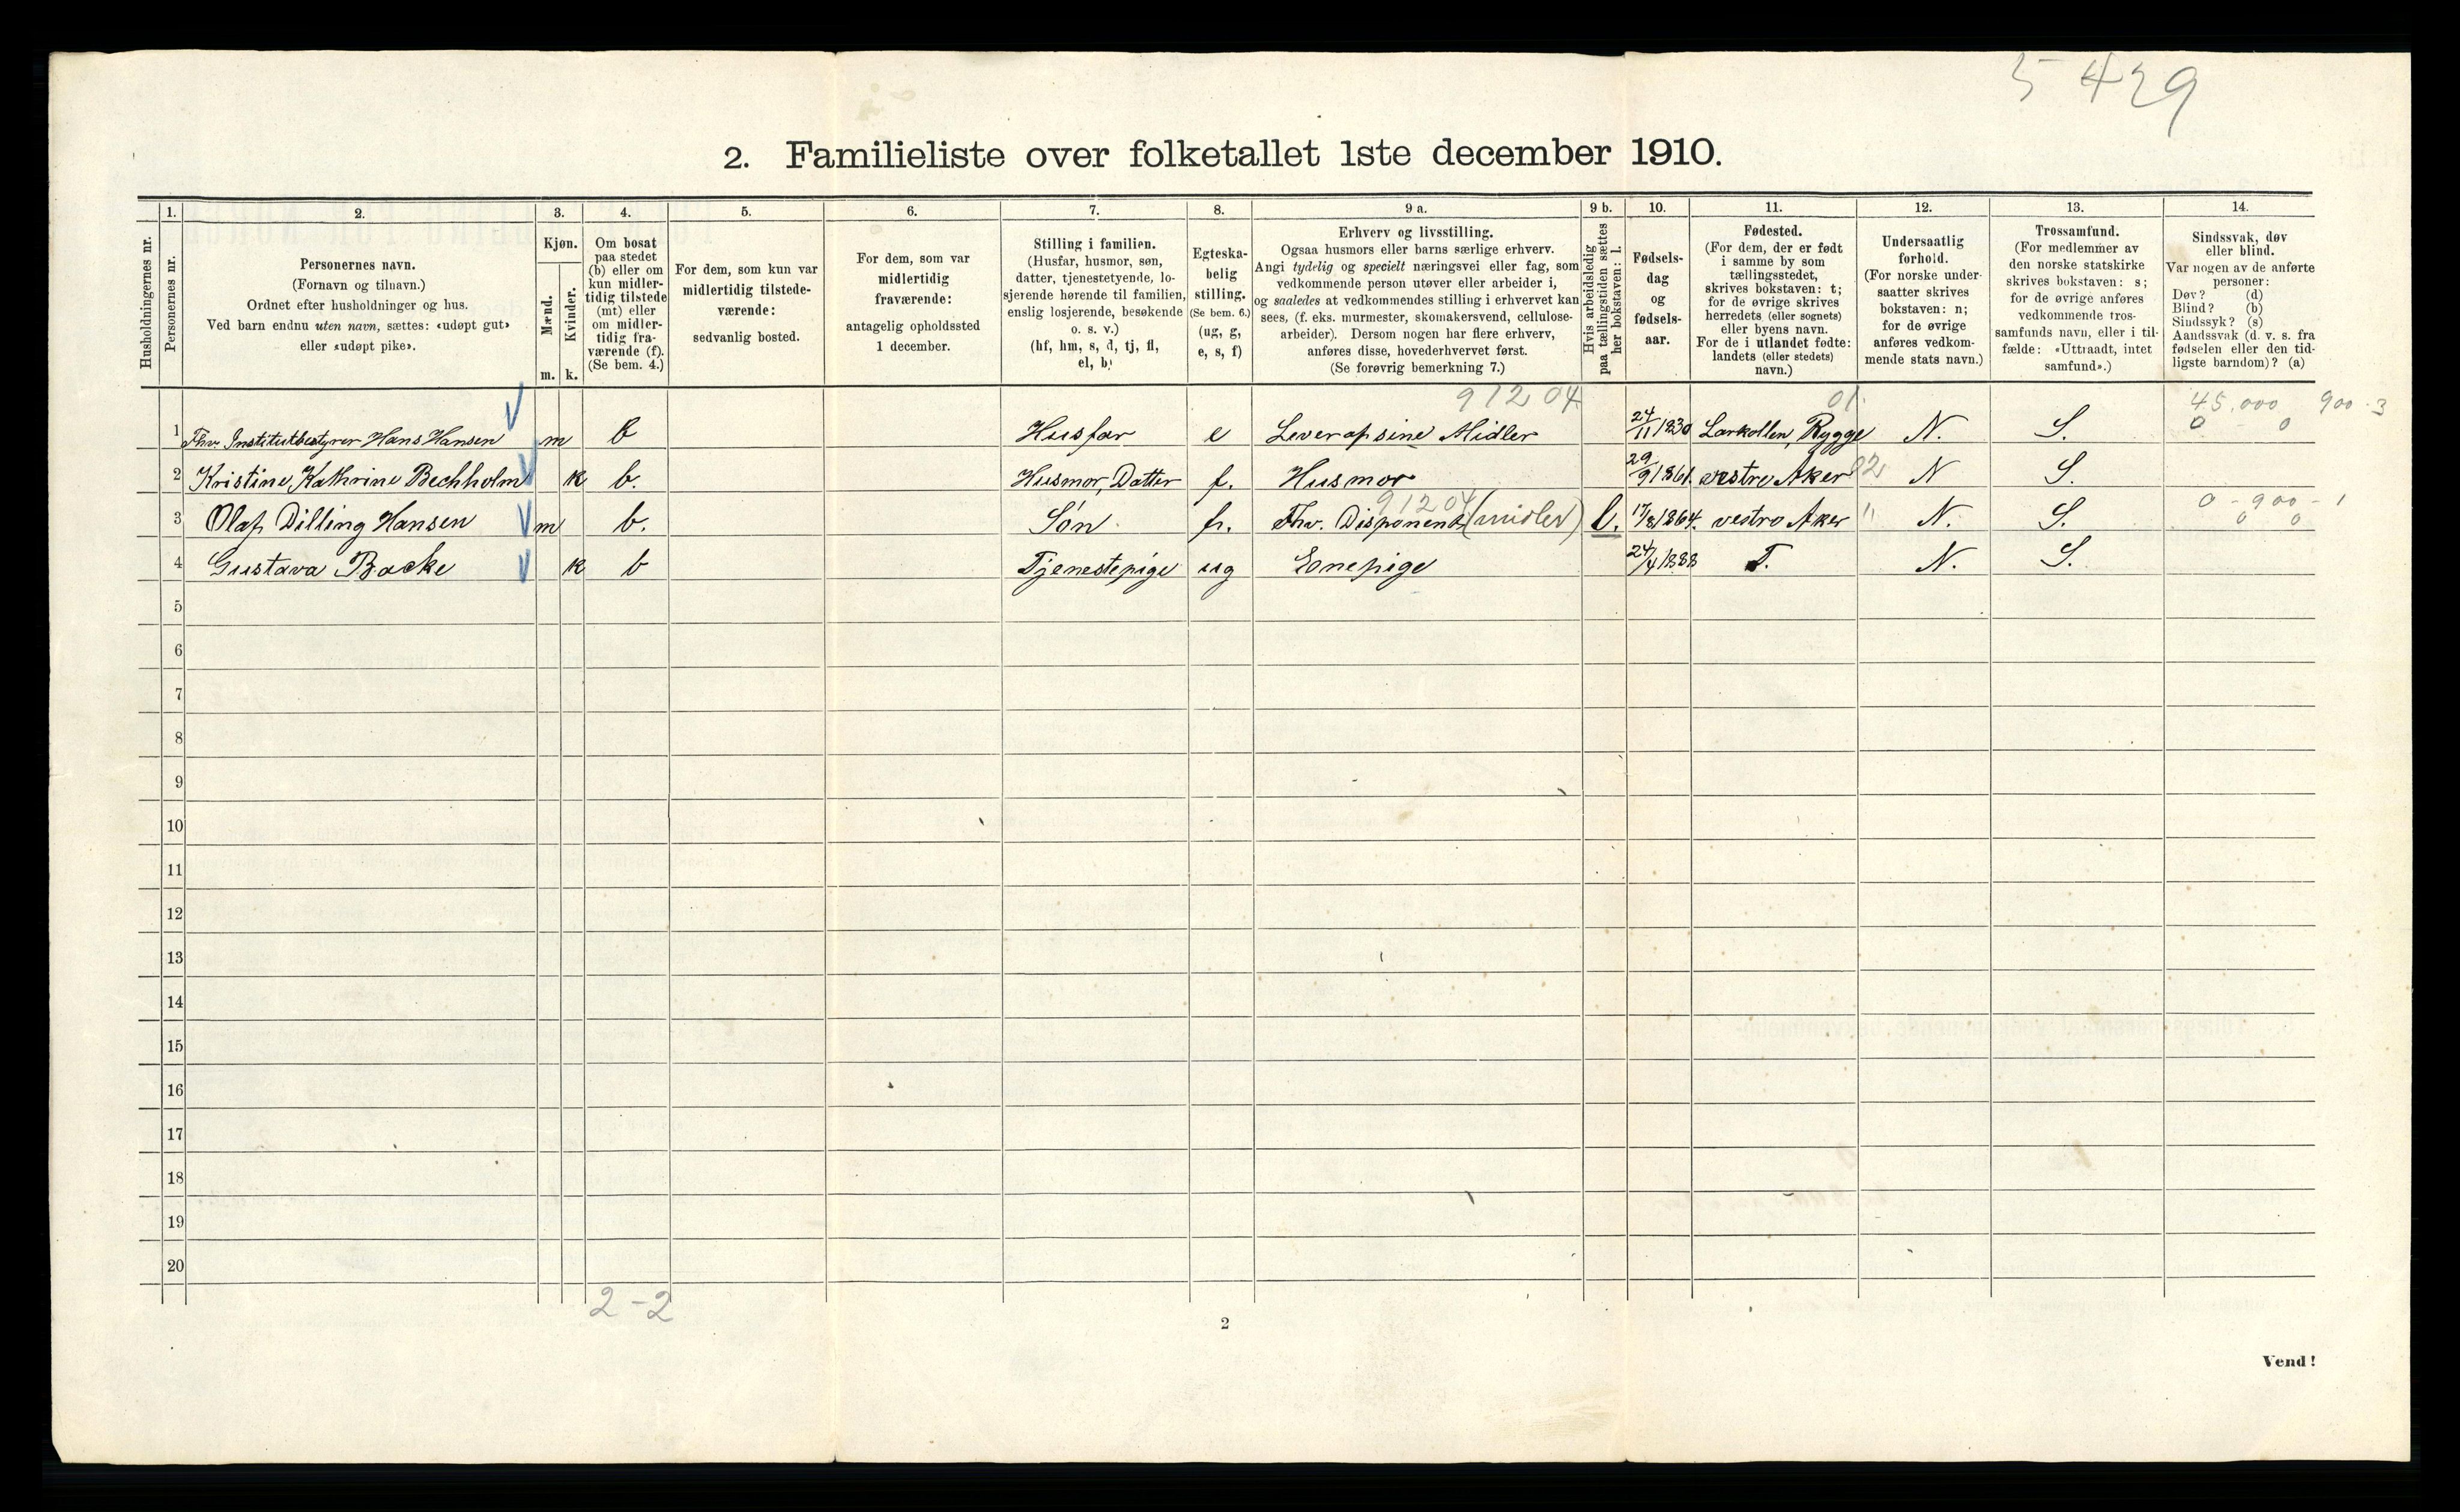 5 429
2. Familieliste over folketallet 1ste december 1910.
Husholdningernes nr.
1.
Personernes nr.
2.
Personernes navn.
(Fornavn og tilnavn.)
Ordnet efter husholdninger og hus.
Ved barn endnu uten navn, sættes: «udøpt gut»
eller «udøpt pike».
3.
Kjøn.
Mænd.
Kvinder.
m. k.
4.
Om bosat
paa stedet
(b) eller om
kun midler-
tidig tilstede
(mt) eller
om midler-
tidig fra-
værende (f).
(Se bem. 4.)
5.
For dem, som kun var
midlertidig tilstede-
værende:
sedvanlig bosted.
6.
For dem, som var
midlertidig
fraværende:
antagelig opholdssted
1 december.
7.
Stilling i familien.
(Husfar, husmor, søn,
datter, tjenestetyende, lo-
sjerende hørende til familien,
enslig losjerende, besøkende
o. s. v.)
(hf, hm, s, d, tj, fl,
el, b)
8.
Egteska-
belig
stilling.
(Se bem. 6.)
(ug, g,
e, s, f)
9 a.
Erhverv og livsstilling.
Ogsaa husmors eller barns særlige erhverv.
Angi tydelig og specielt næringsvei eller fag, som
vedkommende person utøver eller arbeider i,
og saaledes at vedkommendes stilling i erhvervet kan
sees, (f. eks. murmester, skomakersvend, cellulose-
arbeider). Dersom nogen har flere erhverv,
anføres disse, hovederhvervet først.
(Se forøvrig bemerkning 7.)
9 b.
Hvis arbeidsledig
paa tællingstiden sættes
her bokstaven: l.
10.
Fødsels-
dag
og
fødsels-
aar.
11.
Fødested.
(For dem, der er født
i samme by som
tællingsstedet,
skrives bokstaven: t;
for de øvrige skrives
herredets (eller sognets)
eller byens navn.
For de i utlandet fødte:
landets (eller stedets)
navn.)
12.
Undersaatlig
forhold.
(For norske under-
saatter skrives
bokstaven: n;
for de øvrige
anføres vedkom-
mende stats navn.)
13.
Trossamfund.
(For medlemmer av
den norske statskirke
skrives bokstaven: s;
for de øvrige anføres
vedkommende tros-
samfunds navn, eller i til-
fælde: «Uttraadt, intet
samfund».)
14.
Sindssvak, døv
eller blind.
Var nogen av de anførte
personer:
Døv? (d)
Blind? (b)
Sindssyk? (s)
Aandssvak (d. v. s. fra
fødselen eller den tid-
ligste barndom)? (a)
91204 01. 45,000 900.3
1 Fhv. Institutbestyrer Hans Hansen m b Husfar e Lever af sine Midler 24/11 1830 Larkollen, Rygge N. S. 0 0
2 Kristine Kathrine Bechholm k b. Husmor, Datter f. Husmor 29/9 1861. vestre Aker 02 N S.
91204 0 - 900 - 1
3 Olaf Dilling Hansen m b. Søn f. Fhv. Disponent (midler) l. 17/8 1864. vestre Aker " N. S. 0 0
4 Gustava Backe k b Tjenestepige ug Enepige 24/4 1888 T. N. S.
5
6
7
8
9
10
11
12
13
14
15
16
17
18
19
20
2-2
2
Vend!